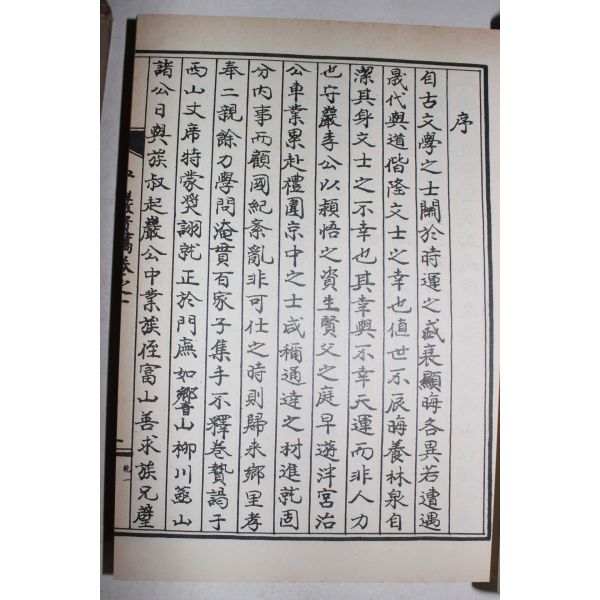 序
自古文學之士關於時運之盛衰顯晦各異若遭遇
晟代與道偕隆文士之幸也値世不辰晦養林泉自
潔其身文士之不幸也其幸與不幸天運而非人力
也守巖李公以穎悟之資生賢父之庭早遊泮宮治
公車業累赴禮圍京中之士咸稱通達之材進就固
分內事而顧國紀紊亂非可仕之時則歸来鄉里孝
奉二親餘力學問淹貫百家子集手不釋卷贄謁于
西山丈席特蒙奬詡就正於門廡如響山柳川蓝山
諸公日與族叔起巖公中業族侄富山善求族兄壁
守巖實稿卷之一
乾一